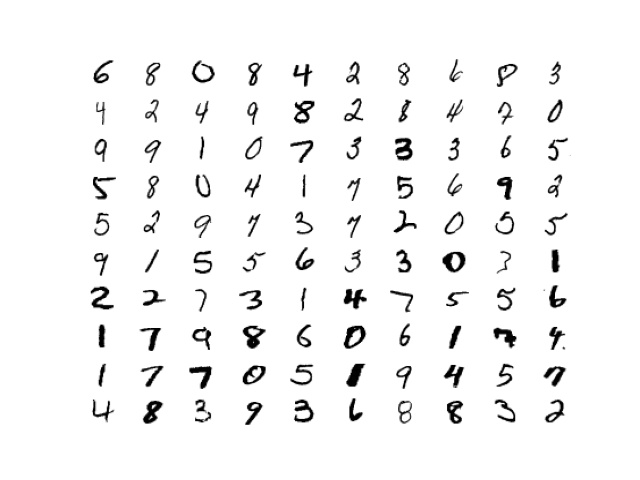 6 8 0 8 4 2 8 6 8 3
4 2 4 9 8 2 8 4 7 0
9 9 1 0 7 3 3 3 6 5
5 8 0 4 1 7 5 6 9 2
5 2 9 7 3 7 2 0 5 5
9 1 5 5 6 3 3 0 3 1
2 2 7 3 1 4 7 5 5 6
1 7 9 8 6 0 6 1 7 4
1 7 7 0 5 1 9 4 5 7
4 8 3 9 3 6 8 8 3 2